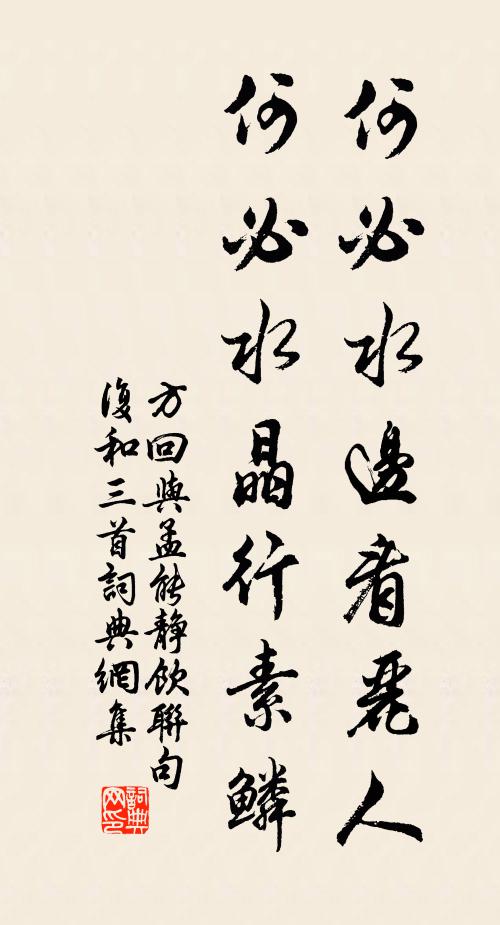 何必水邊看麗人
何必水晶行素鱗
方回與孟能靜飲聯句
復和三首詞典網集
詞典
网印